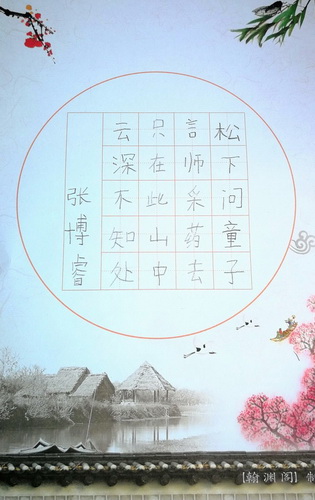 松下问童子
言师采药去
只在此山中
云深不知处
张博睿
[翰渊阁]制